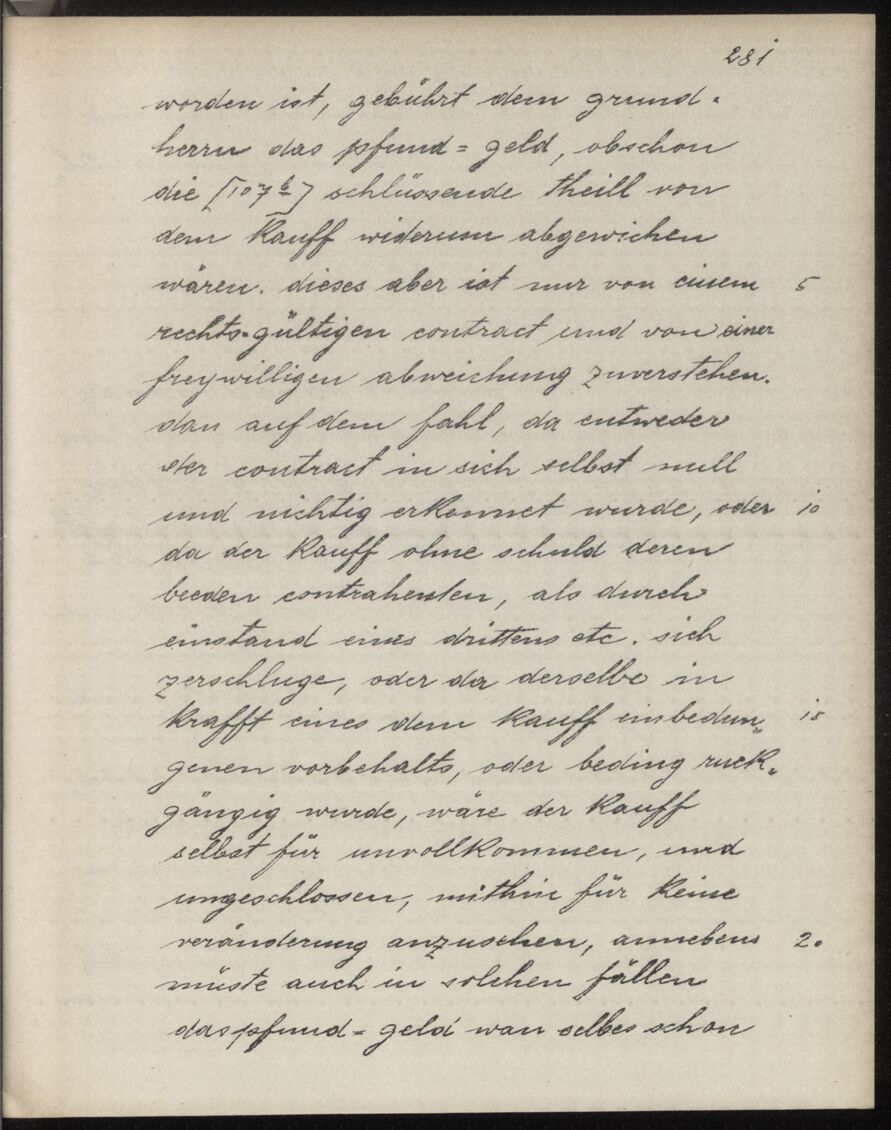 281
worden ist, gebührt dem grund-
herrn das pfund=geld, obschon
die [107b] schlüssende theill von
dem Kauff widerum abgewichen
wären. dieses aber ist nur von einem 5
rechts=gültigen contract und von einer
freywilligen abweichung zuverstehen.
dan auf dem fahl, da entweder
der contract in sich selbst null
und nichtig erkennet wurde, oder 10
da der Kauff ohne schuld deren
beeden contrahenten, als durch
einstand eines drittens etc. sich
zerschluge, oder da derselbe in
Krafft eines dem Kauff einbedun„ 15
genen vorbehalts, oder beding ruck„
gängig wurde, wäre der Kauff
selbst für unvollkommen, und
ungeschlossen, mithin für keine
veränderung anzusehen, annebens 20
müste auch in solchen fällen
das pfund=geld wan selbes schon